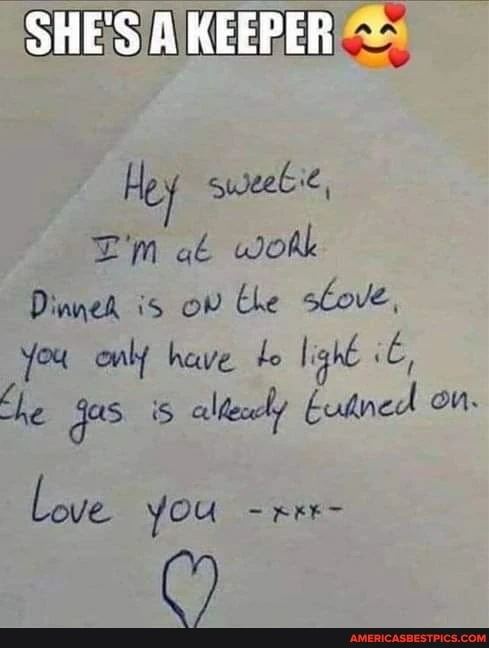 SHE'S A KEEPER 🥰
Hey sweetie,
I'm at work
Dinner is on the stove,
you only have to light it,
the gas is already turned on.
Love you -xxx-
AMERICASBESTPICS.COM